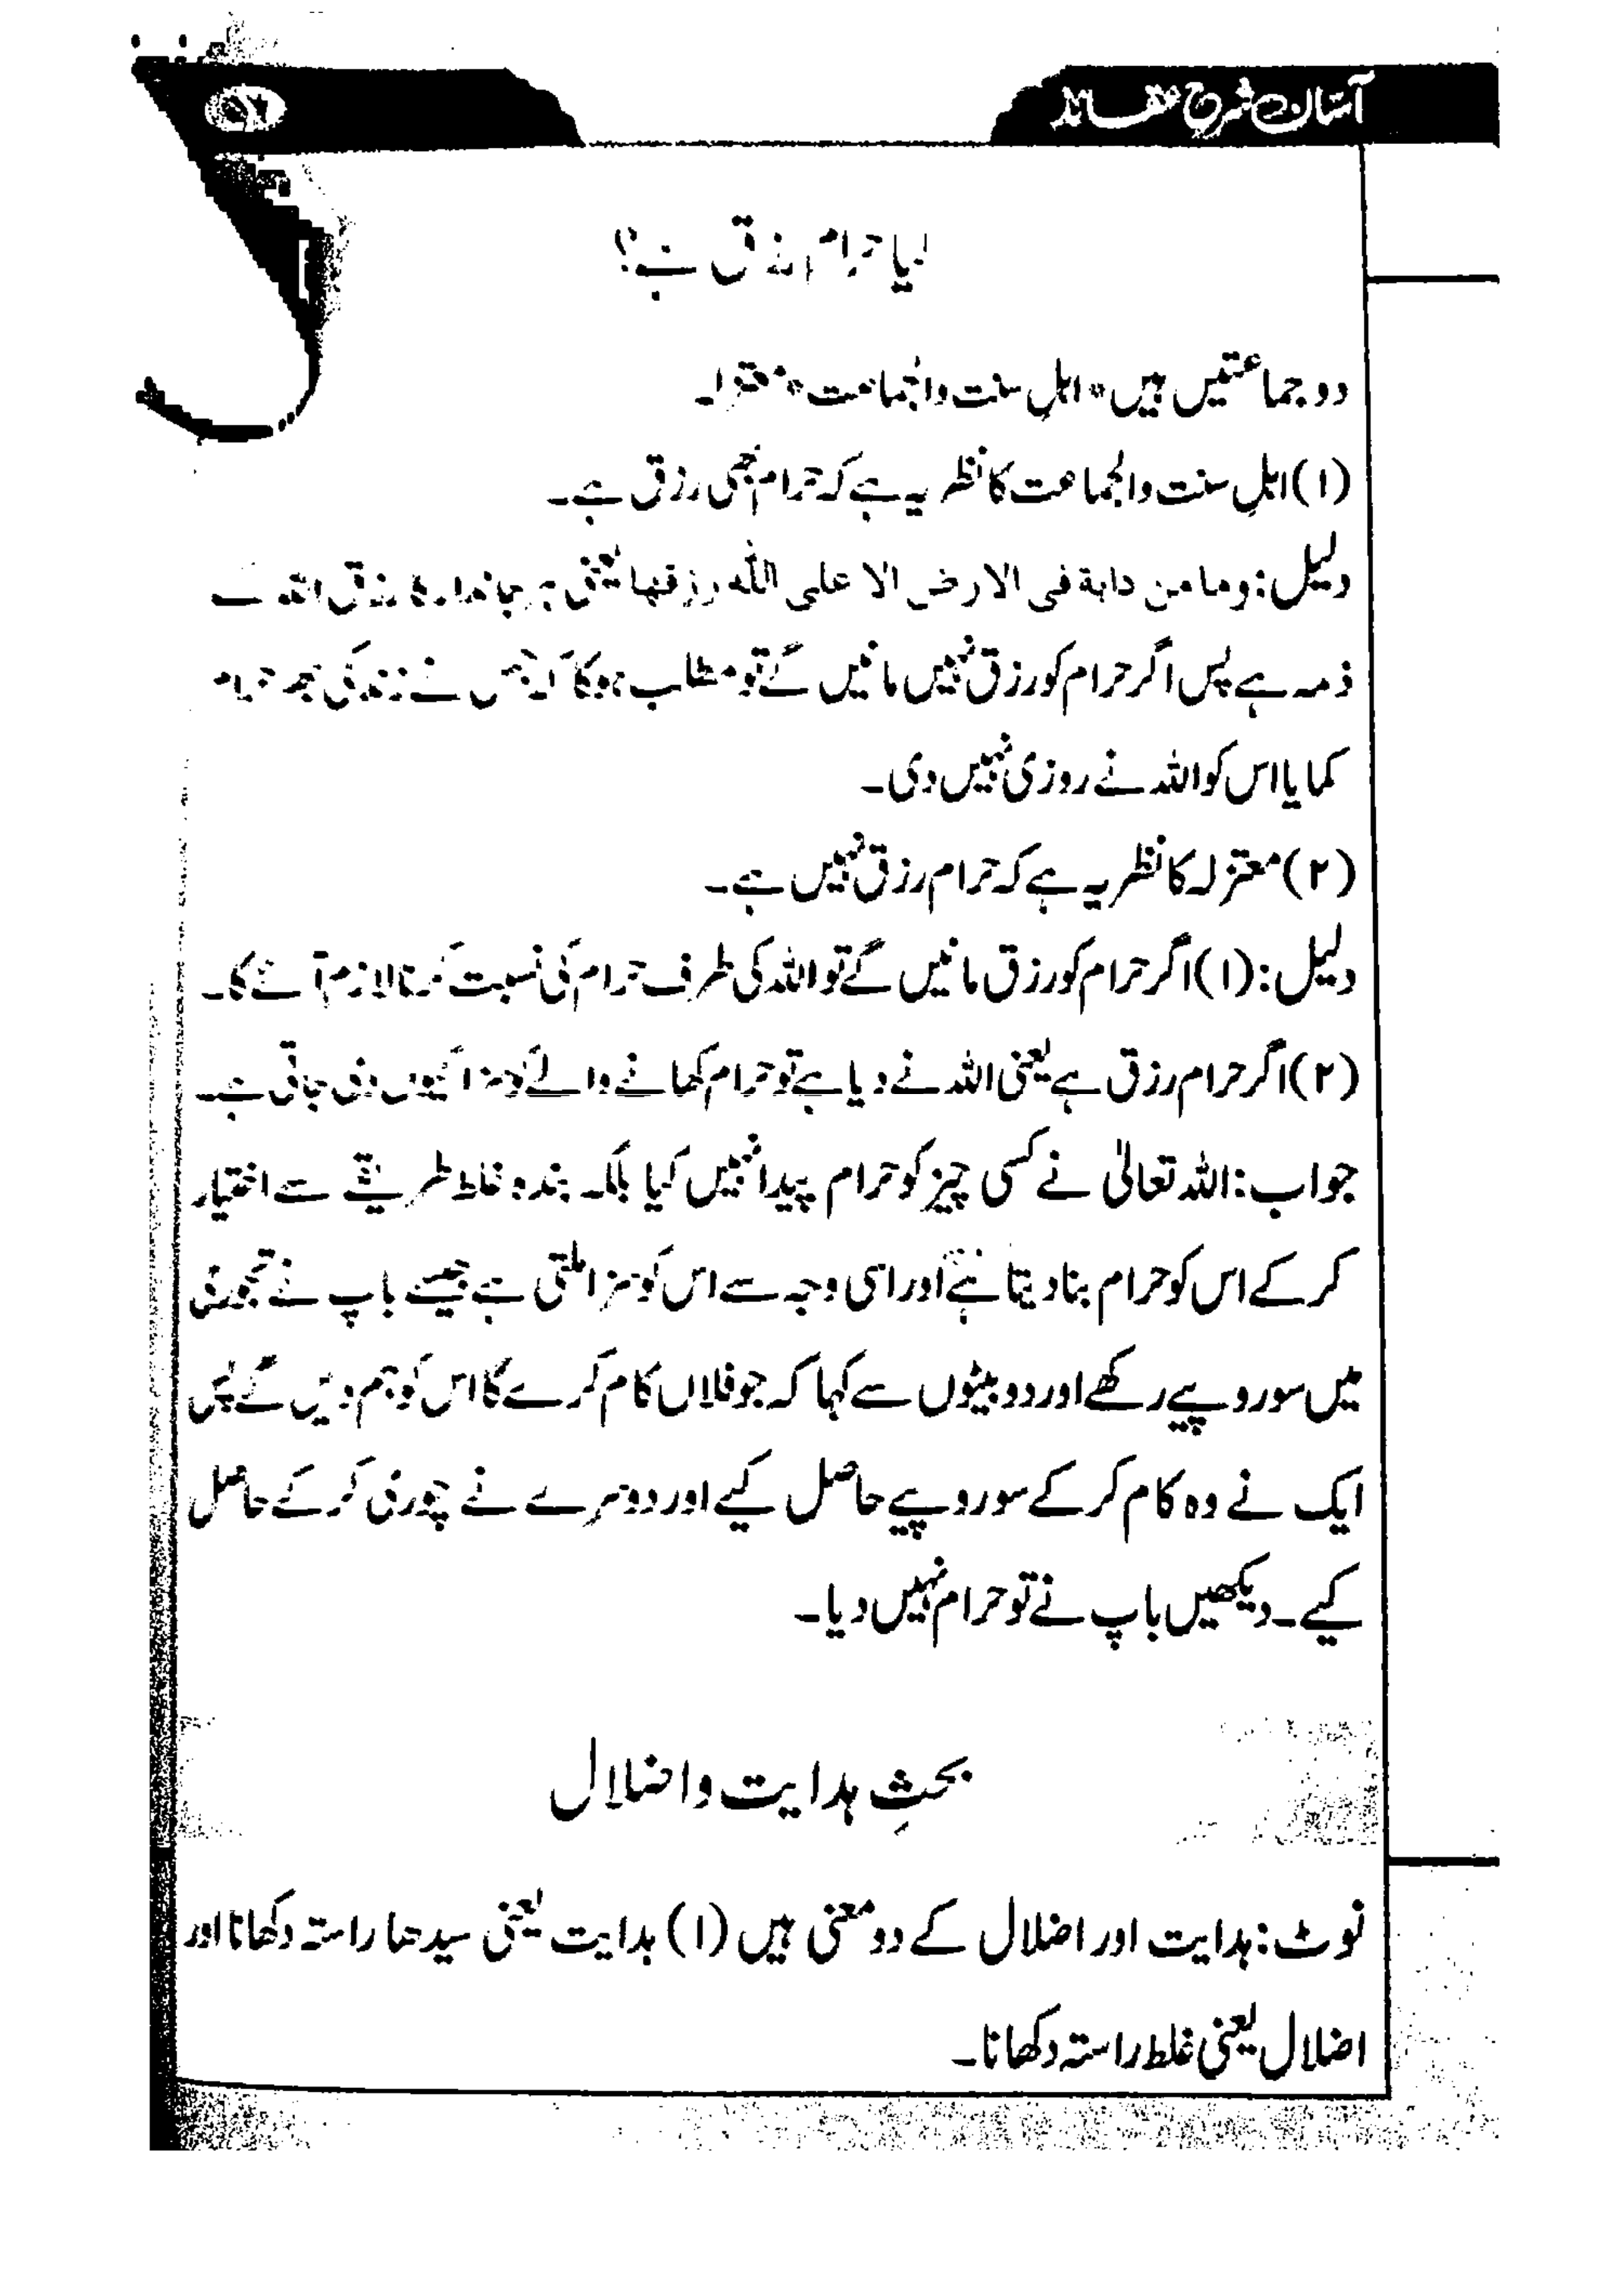 آسان شرح عقائد
کیا حرام رزق ہے؟
دو جماعتیں ہیں * اہلِ سنت والجماعت * معتزلہ
(۱) اہلِ سنت والجماعت کا نظریہ ہے کہ حرام بھی رزق ہے۔
دلیل: وما من دابة فی الارض الا علی اللہ رزقها یعنی ہر جاندار کا رزق اللہ کے
ذمہ ہے پس اگر حرام کو رزق نہیں مانیں گے تو مطلب ہوگا کہ جس نے زندگی بھر حرام
کمایا اس کو اللہ نے روزی نہیں دی۔
(۲) معتزلہ کا نظریہ ہے کہ حرام رزق نہیں ہے۔
دلیل: (۱) اگر حرام کو رزق مانیں گے تو اللہ کی طرف حرام کی نسبت کرنا لازم آئے گا۔
(۲) اگر حرام رزق ہے یعنی اللہ نے دیا ہے تو حرام کھانے والے کو سزا کیوں دی جاتی ہے۔
جواب: اللہ تعالیٰ نے کسی چیز کو حرام پیدا نہیں کیا بلکہ بندہ غلط طریقے سے اختیار
کر کے اس کو حرام بنا دیتا ہے اور اسی وجہ سے اس کو سزا ملتی ہے جیسے باپ نے تجوری
میں سو روپیے رکھے اور دو بیٹوں سے کہا کہ جو فلاں کام کرے گا اس کو ہم دیں گے پس
ایک نے وہ کام کر کے سو روپیے حاصل کیے اور دوسرے نے چوری کر کے حاصل
کیے۔ دیکھیں باپ نے تو حرام نہیں دیا۔
بحثِ ہدایت واضلال
نوٹ: ہدایت اور اضلال کے دو معنی ہیں (۱) ہدایت یعنی سیدھا راستہ دکھانا اور
اضلال یعنی غلط راستہ دکھانا۔